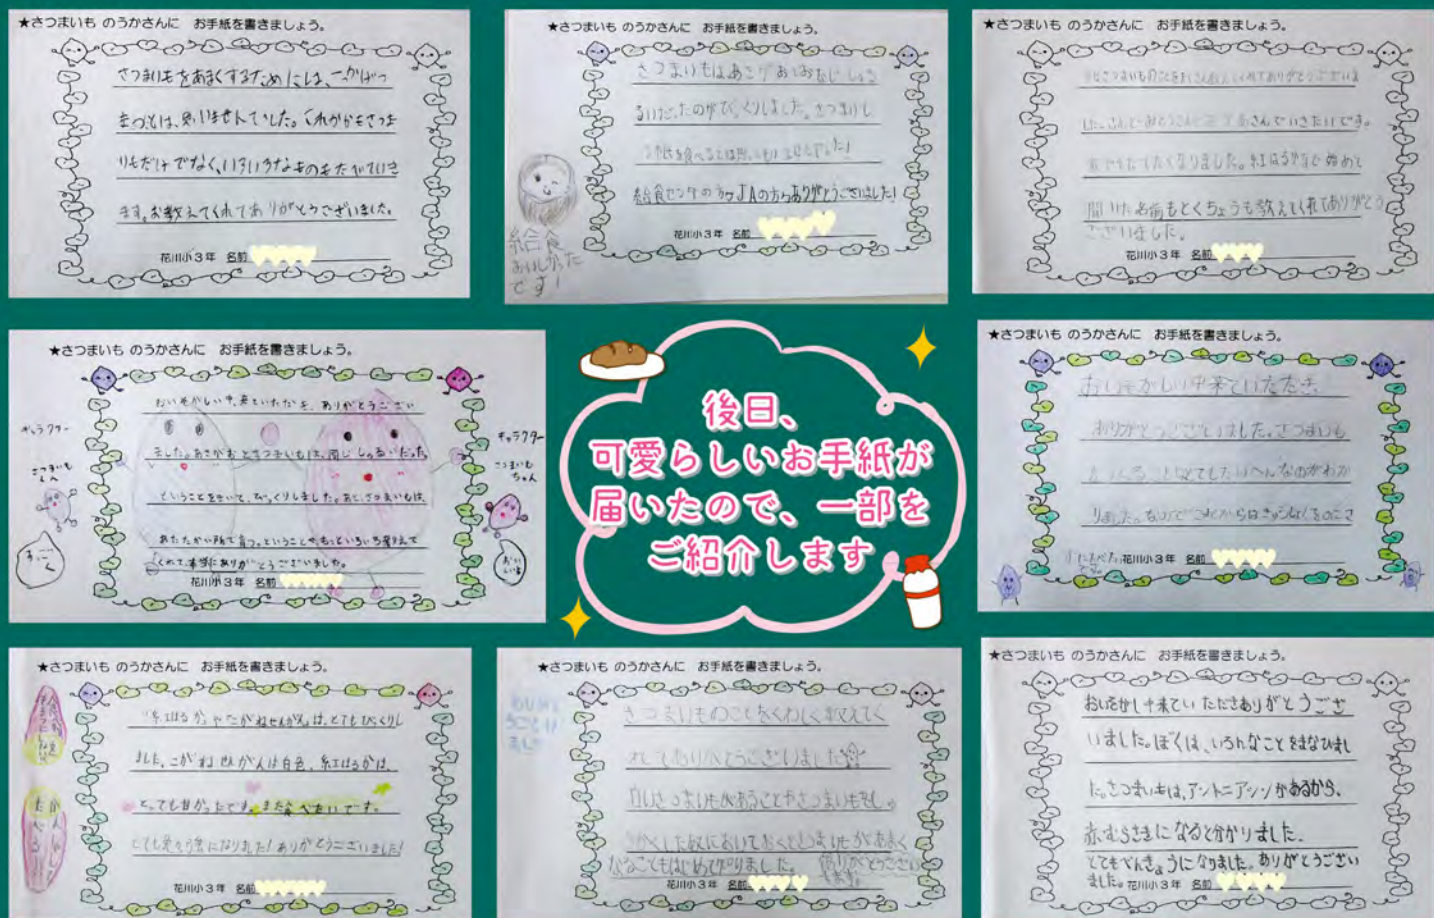 ★さつまいも のうかさんに お手紙を書きましょう。
さつまいもをあまくするためには、一か
まつとは、思いませんでした。これからもさつま
いもだけでなく、いろいろなものをたべていき
ます。お教えてくれてありがとうございました。
花川小3年 名前
★さつまいも のうかさんに お手紙を書きましょう。
さつまいもはあさがおとおなじしゅ
るいだったのがびっくりしました。さつまいも
を食べるとは思いませんでした!
給食センターの方々JAの方々ありがとうございました!
給食
おいしかった
です!
花川小3年 名前
★さつまいも のうかさんに お手紙を書きましょう。
さつまいものことをたくさんおしえてくれてありがとうございま
した。
たくなりました。紅はるかなど始めて
聞いた名前もとくちょうも教えてくれてありがとう
ございました。
花川小3年 名前
★さつまいも のうかさんに お手紙を書きましょう。
おいそがしい中、来ていただき、ありがとうござい
ました。あさがおとさつまいもは、同じしゅるいだった
ということをきいて、びっくりしました。あと、さつまいもは、
あたたかい所で育つ。ということや、もっといろいろ教えて
くれて、本当にありがとうございました。
花川小3年 名前
キャラクター
さつまいも
くん
すごく
キャラクター
さつまいも
ちゃん
おいしいよ
後日、
可愛らしいお手紙が
届いたので、一部を
ご紹介します
★さつまいも のうかさんに お手紙を書きましょう。
おいそがしい中来ていただき
ありがとうございました。さつまいも
を作ることはとてもたいへんなのがわか
りました。なのでこれからはきゅうしょくをのこさ
ずにたべたいです。
花川小3年 名前
★さつまいも のうかさんに お手紙を書きましょう。
紅はるかやこがねせんがんは、とてもびっくりし
ました。こがねせんがんは白色、紅はるかは、
とっても甘かったです。また食べたいです。
とても べん強になりました!ありがとうございました!
花川小3年 名前
★さつまいも のうかさんに お手紙を書きましょう。
ありがとうございました
さつまいものことをくわしく教えてく
れてありがとうございました
白いさつまいもがあることやさつまいもをしゅ
うかくした後においておくとさつまいもがあまく
なることもはじめて知りました。ありがとうござい
ました。
花川小3年 名前
★さつまいも のうかさんに お手紙を書きましょう。
おいそがし中来ていただきありがとうござ
いました。ぼくは、いろんなことをまなびまし
た。さつまいもは、アントニアシンがあるから、
赤むらさきになると分かりました。
とてもべんきょうになりました。ありがとうござい
ました。
花川小3年 名前